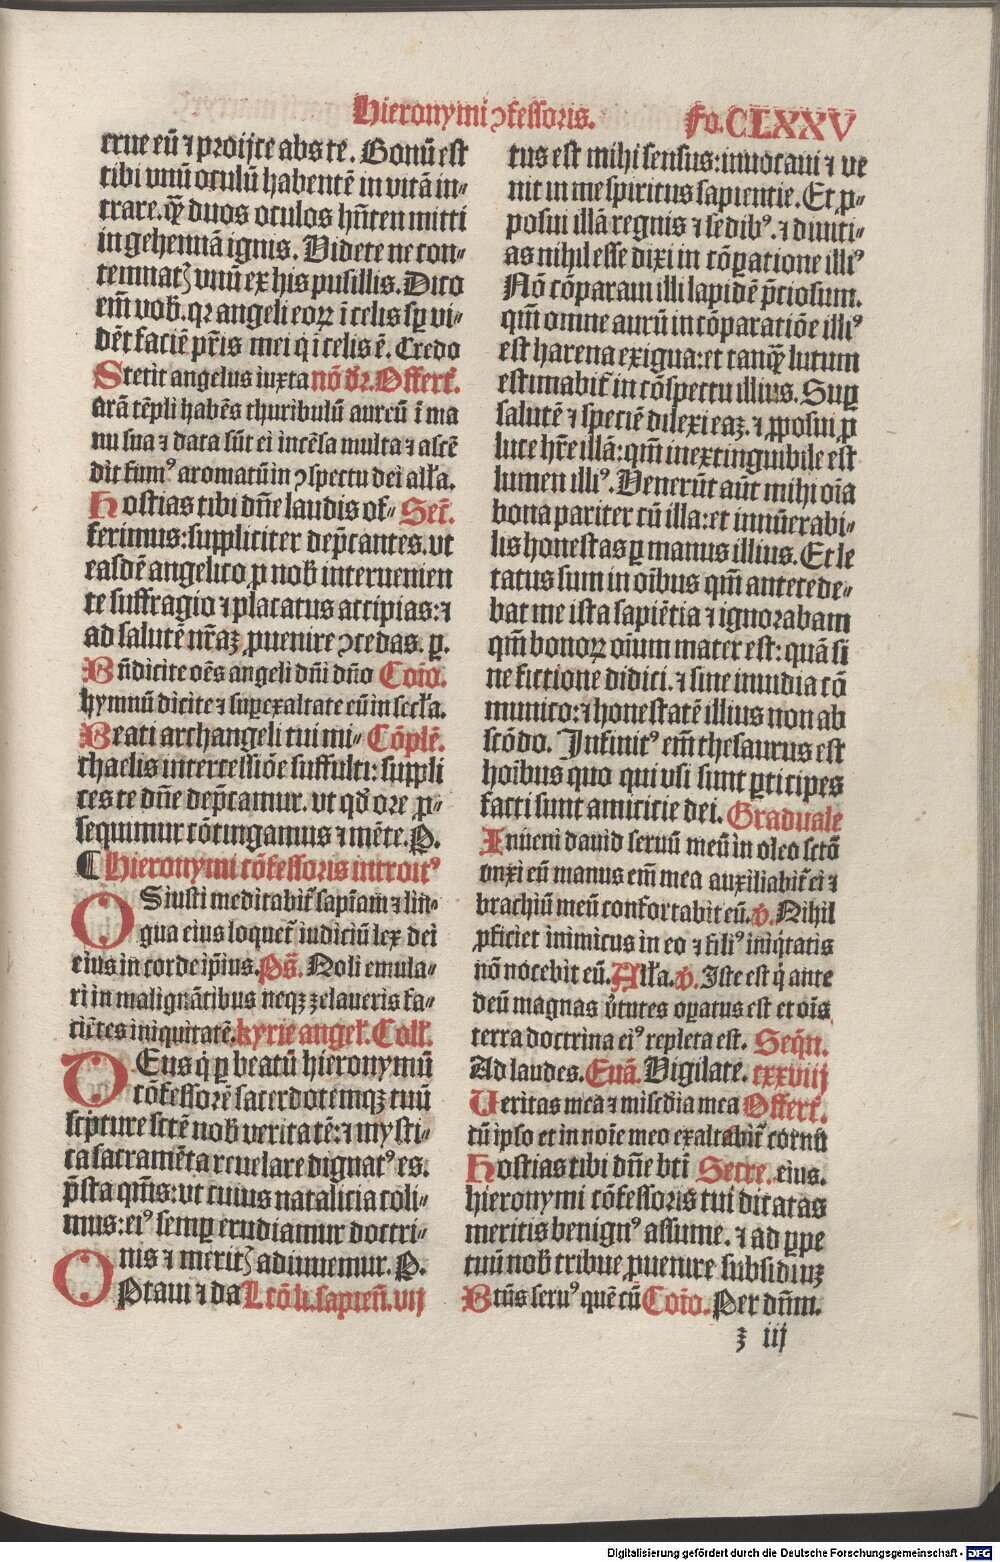 Hieronymi ꝯfessoris. Fo. CLXXV
erue eū ⁊ proijce abs te. Bonū est
tibi vnū oculū habentē in vitā in-
trare. ꝙ̄ duos oculos hn̄tem mitti
in gehennā ignis. Videte ne con-
temnatꝭ vnū ex his pusillis. Dico
em̄ vob̄. qꝛ angeli eoꝝ ī celis sꝑ vi-
dēt faciē pr̄is mei q ī celis ē. Credo
Stetit angelus iuxta nō d̄r. Offert̄.
arā tēpli habēs thuribulū aureū ī ma
nu sua ⁊ data sūt ei incēsa multa ⁊ ascē
dit fumꝰ aromatū in ꝯspectu dei all̄a.
Hostias tibi dn̄e laudis of- Secr̄.
ferimus: suppliciter dep̄cantes. vt
easdē angelico ꝓ nob̄ interuenien
te suffragio ⁊ placatus accipias: ⁊
ad salutē nr̄aꝫ ꝓuenire ꝯcedas. ꝑ.
Bn̄dicite oēs angeli dn̄i dn̄o Coīo.
hymnū dicite ⁊ suꝑexaltate eū in secl̄a.
Beati archangeli tui mi- Cōplē.
chaelis intercessiōe suffulti: suppli
ces te dn̄e dep̄camur. vt qd̄ ore ꝓ-
sequimur cōtingamus ⁊ mēte. P.
¶ Hieronymi cōfessoris introitꝰ
OS iusti meditabit̄ sapīam ⁊ lin-
gua eius loquet̄ iudiciū lex dei
eius in corde ipīus. Ps̄. Noli emula-
ri in malignātibus neqꝫ zelaueris fa-
ciētes iniquitatē. kyrie angel̄. Coll̄.
DEus q̇ ꝑ beatū hieronymū
cōfessorē sacerdotemqꝫ tuū
scpture sctē nob̄ veritatē: ⁊ mysti-
ca sacramēta reuelare dignatꝰ es.
p̄sta qm̄s: vt cuius natalicia coli-
mus: eiꝰ semꝑ erudiamur doctri-
nis ⁊ meritꝭ adiuuemur. P.
OPtaui ⁊ da Lcō li. sapien̄. vij
tus est mihi sensus: inuocaui ⁊ ve
nit in me spiritus sapientie. Et p̄-
posui illā regnis ⁊ sedibꝰ. ⁊ diuiti-
as nihil esse dixi in cōꝑatione illiꝰ
Nō cōparaui illi lapidē p̄ciosum.
qm̄ omne aurū in cōparatiōe illiꝰ
est harena exigua: et tanqꝫ̄ lutum
estimabit̄ in cōspectu illius. Suꝑ
salutē ⁊ speciē dilexi eaꝫ. ⁊ ꝓposui ꝓ
luce hr̄e illā: qm̄ inextinguibile est
lumen illiꝰ. Venerūt aūt mihi oīa
bona pariter cū illa: et innūerabi-
lis honestas ꝑ manus illius. Et le
tatus sum in oībus qm̄ antecede-
bat me ista sapiētia ⁊ ignorabam
qm̄ bonoꝝ oīum mater est: quā si
ne fictione didici. ⁊ sine inuidia cō
munico: ⁊ honestatē illius non ab
scōdo. Infinitꝰ em̄ thesaurus est
hoībus quo qui vsi sunt ꝑticipes
facti sunt amicicie dei. Graduale
Inueni dauid seruū meū in oleo sctō
vnxi eū manus em̄ mea auxiliabit̄ ei ⁊
brachiū meū confortabit eū. ℣. Nihil
ꝓficiet inimicus in eo ⁊ filiꝰ iniq̇tatis
nō nocebit eū. All̄a. ℣. Iste est q̇ ante
deū magnas v̄tutes oꝑatus est et oīs
terra doctrina eiꝰ repleta est. Seqn̄.
Ad laudes. Euā. Vigilate. cxxviij
Veritas mea ⁊ misc̄dia mea Offert̄.
cū ipso et in noīe meo exaltabit̄ cornu
Hostias tibi dn̄e bt̄i Secre. eius.
hieronymi cōfessoris tui dicatas
meritis benignꝰ assume. ⁊ ad ꝑpe
tuū nob̄ tribue ꝓuenire subsidiuꝫ
Bt̄us seruꝰ quē cū Coīo. Per dn̄m.
z iij
Digitalisierung gefördert durch die Deutsche Forschungsgemeinschaft - DFG